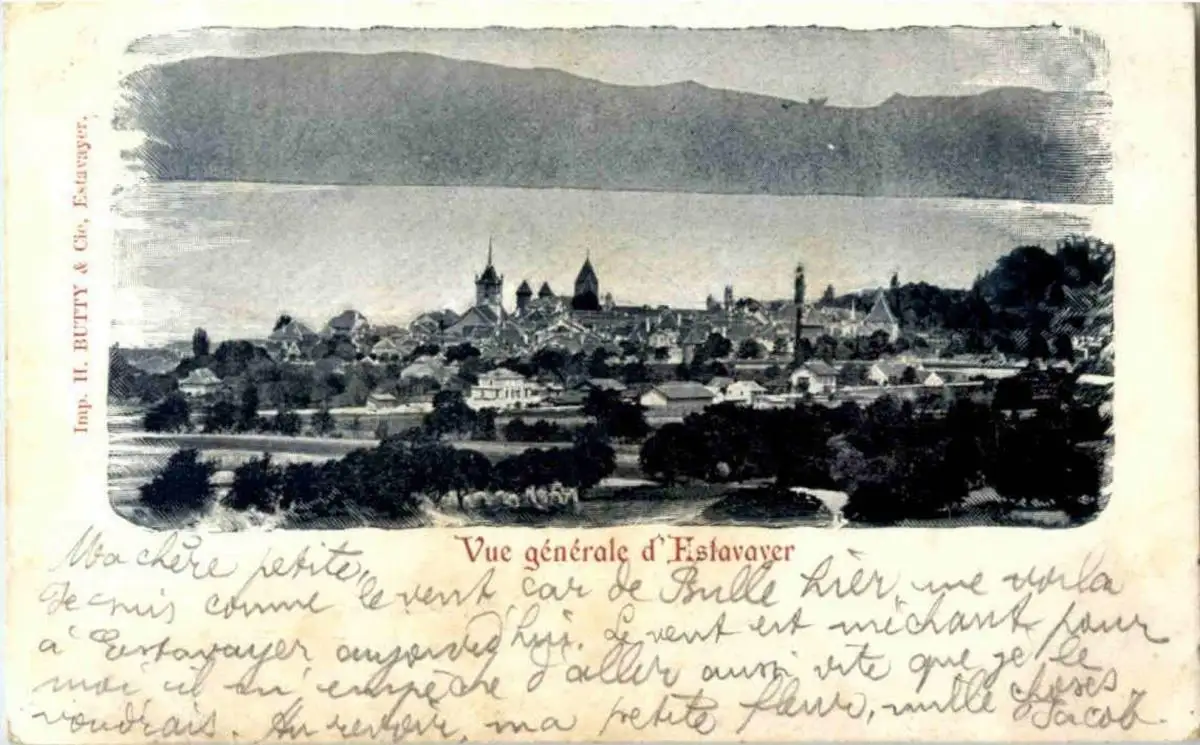 Imp. H. BUTTY & Cie, Estavayer.
Vue générale d'Estavayer
Ma chère petite,
Je suis comme le vent, car de Bulle hier, me voilà
à Estavayer aujourd'hui. Le vent est méchant pour
moi il m'empêche d'aller aussi vite que je le
voudrais. Au revoir, ma petite fleur, mille choses.
Jacob.